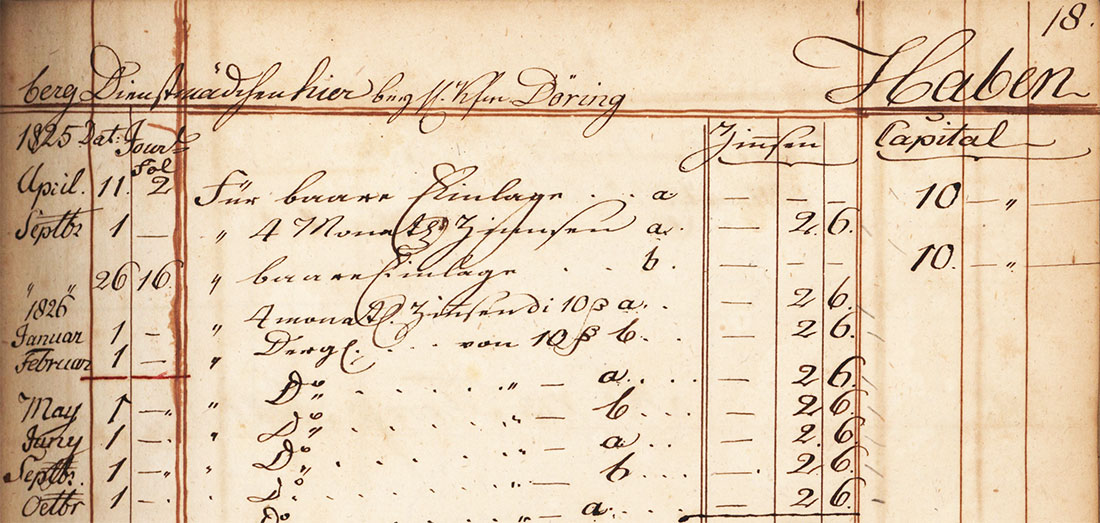 18.
berg Dienstmädchen hier bey Döring Haben
1825 Dat: Jourl Fol Zinsen Capital
April. 11. 2 Für baare Einlage . . a — — — 10 — „ —
Septbr 1 — „ 4 Monatl Zinnsen a. — 2. 6.
„ „ 26 16. „ baare Einlage . . b. — — — 10. — „ —
1826
Januar 1 — „ 4 monatl. Zinsen di 10 a . . — 2 6.
Februar 1 — „ Dergl. . . . von 10 b. — 2 6.
May 1 — „ „ Do . . . . . „ — a . . . — 2 6.
Juny 1 — „ Do . . . . . „ — b . . . — 2 6.
Septbr. 1 — „ „ Do . . . . . „ — a . . . — 2 6.
Octbr 1 — . Do . . . . . „ — b . . . — 2 6.
Do . . . . . a . . . — 2 6.